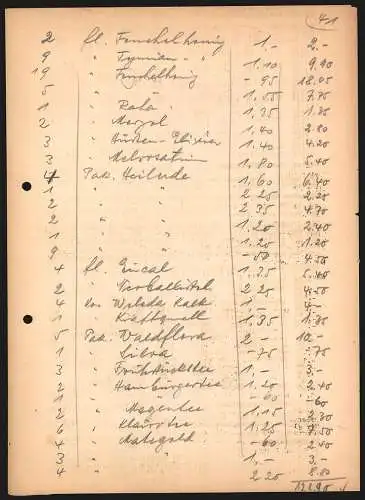 41
2 fl. Fenchelhonig 1.- 2.-
9 " Tymian- " 1.10 9.90
19 " Fenchelhonig -95 18.05
5 " " 1.55 7.75
1 " 1.35 1.35
2 " 1.40 2.80
3 " Elixier 1.40 4.20
3 " 1.80 5.40
4 Pak. 1.60 6.40
1 " " 2.20 2.20
2 " " 2.35 4.70
2 " " 1.20 2.40
1 " " 1.20 1.20
9 " -50 4.50
4 fl. 1.35 5.40
2 " 2.25 4.50
4 Kalk 1.- 4.-
1 " Kraftquell 1.35 1.35
5 Pak. Waldflora 2.- 10.-
1 " Silva -75 -75
3 " Frühstückstee
2 " Hamburgertee 1.20 2.40
1 " " -60 -60
2 " Magentee 1.15 2.30
6 " 1.25 7.50
4 " Mategold -60 2.40
3 " " 1.- 3.-
4 " " 2.20 8.80